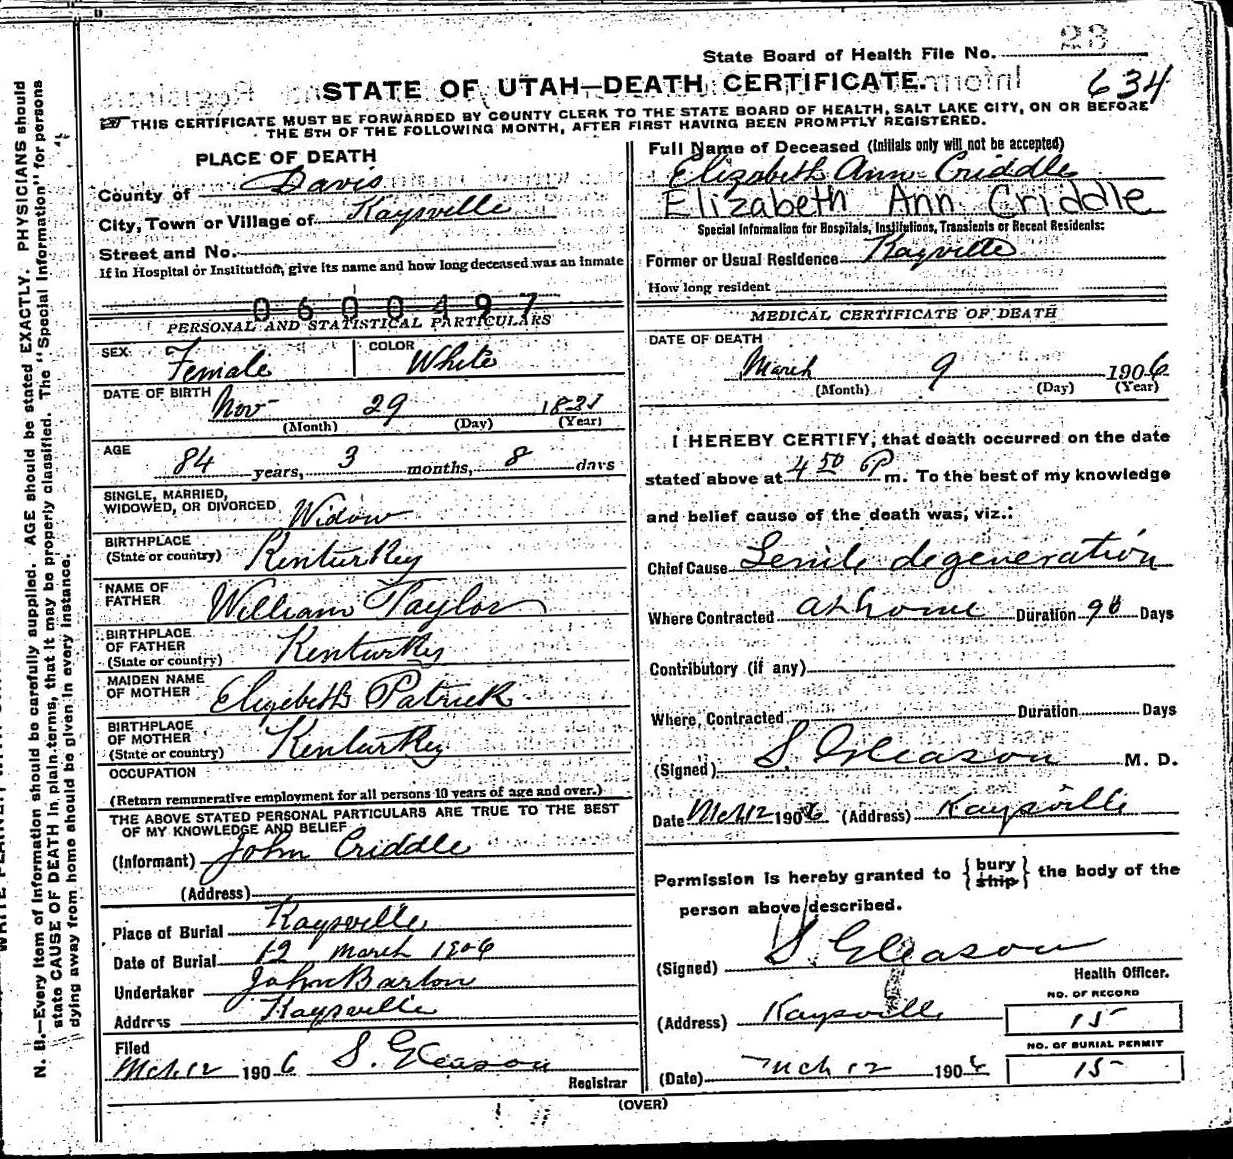 State Board of Health File No. 23
STATE OF UTAH—DEATH CERTIFICATE.
634
THIS CERTIFICATE MUST BE FORWARDED BY COUNTY CLERK TO THE STATE BOARD OF HEALTH, SALT LAKE CITY, ON OR BEFORE
THE 5TH OF THE FOLLOWING MONTH, AFTER FIRST HAVING BEEN PROMPTLY REGISTERED.
PLACE OF DEATH
County of Davis
City, Town or Village of Kaysville
Street and No.
If in Hospital or Institution, give its name and how long deceased was an inmate
0600497
PERSONAL AND STATISTICAL PARTICULARS
SEX Female COLOR White
DATE OF BIRTH Nov 29
(Month) (Day) (Year)
AGE 84 years, 3 months, 8 days
SINGLE, MARRIED,
WIDOWED, OR DIVORCED Widow
BIRTHPLACE
(State or country) Kenturkey
NAME OF
FATHER William Taylor
BIRTHPLACE
OF FATHER
(State or country) Kenturkey
MAIDEN NAME
OF MOTHER Elizebeth Patrick
BIRTHPLACE
OF MOTHER
(State or country) Kenturkey
OCCUPATION
(Return remunerative employment for all persons 10 years of age and over.)
THE ABOVE STATED PERSONAL PARTICULARS ARE TRUE TO THE BEST
OF MY KNOWLEDGE AND BELIEF
(Informant) John Criddle
(Address)
Place of Burial Kaysville
Date of Burial 12 March 1906
Undertaker John Barton
Address Kaysville
Filed
Mch 12 1906 S. Gleason
Registrar
Full Name of Deceased (Initials only will not be accepted)
Elizabeth Ann Criddle
Elizabeth Ann Criddle
Special Information for Hospitals, Institutions, Transients or Recent Residents:
Former or Usual Residence Kaysville
How long resident
MEDICAL CERTIFICATE OF DEATH
DATE OF DEATH
March 9 1906
(Month) (Day) (Year)
I HEREBY CERTIFY, that death occurred on the date
stated above at 4 50 P m. To the best of my knowledge
and belief cause of the death was, viz.:
Chief Cause Senile degeneration
Where Contracted at home Duration 90 Days
Contributory (if any)
Where Contracted Duration Days
(Signed) S. Gleason M. D.
Date Mch 12 1906 (Address) Kaysville
Permission is hereby granted to {bury ship} the body of the
person above described.
(Signed) S. Gleason
Health Officer.
(Address) Kaysville
NO. OF RECORD
15
NO. OF BURIAL PERMIT
15
(Date) Mch 12 1906
(OVER)
N. B.—Every item of information should be carefully supplied. AGE should be stated EXACTLY. PHYSICIANS should
state CAUSE OF DEATH in plain terms, that it may be properly classified. The "Special Information" for persons
dying away from home should be given in every instance.